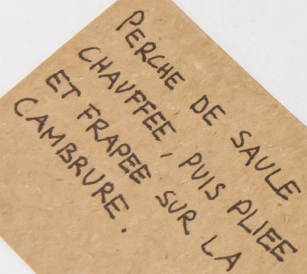 PERCHE DE SAULE
CHAUFFEE, PUIS PLIEE
ET FRAPEE SUR LA
CAMBRURE.